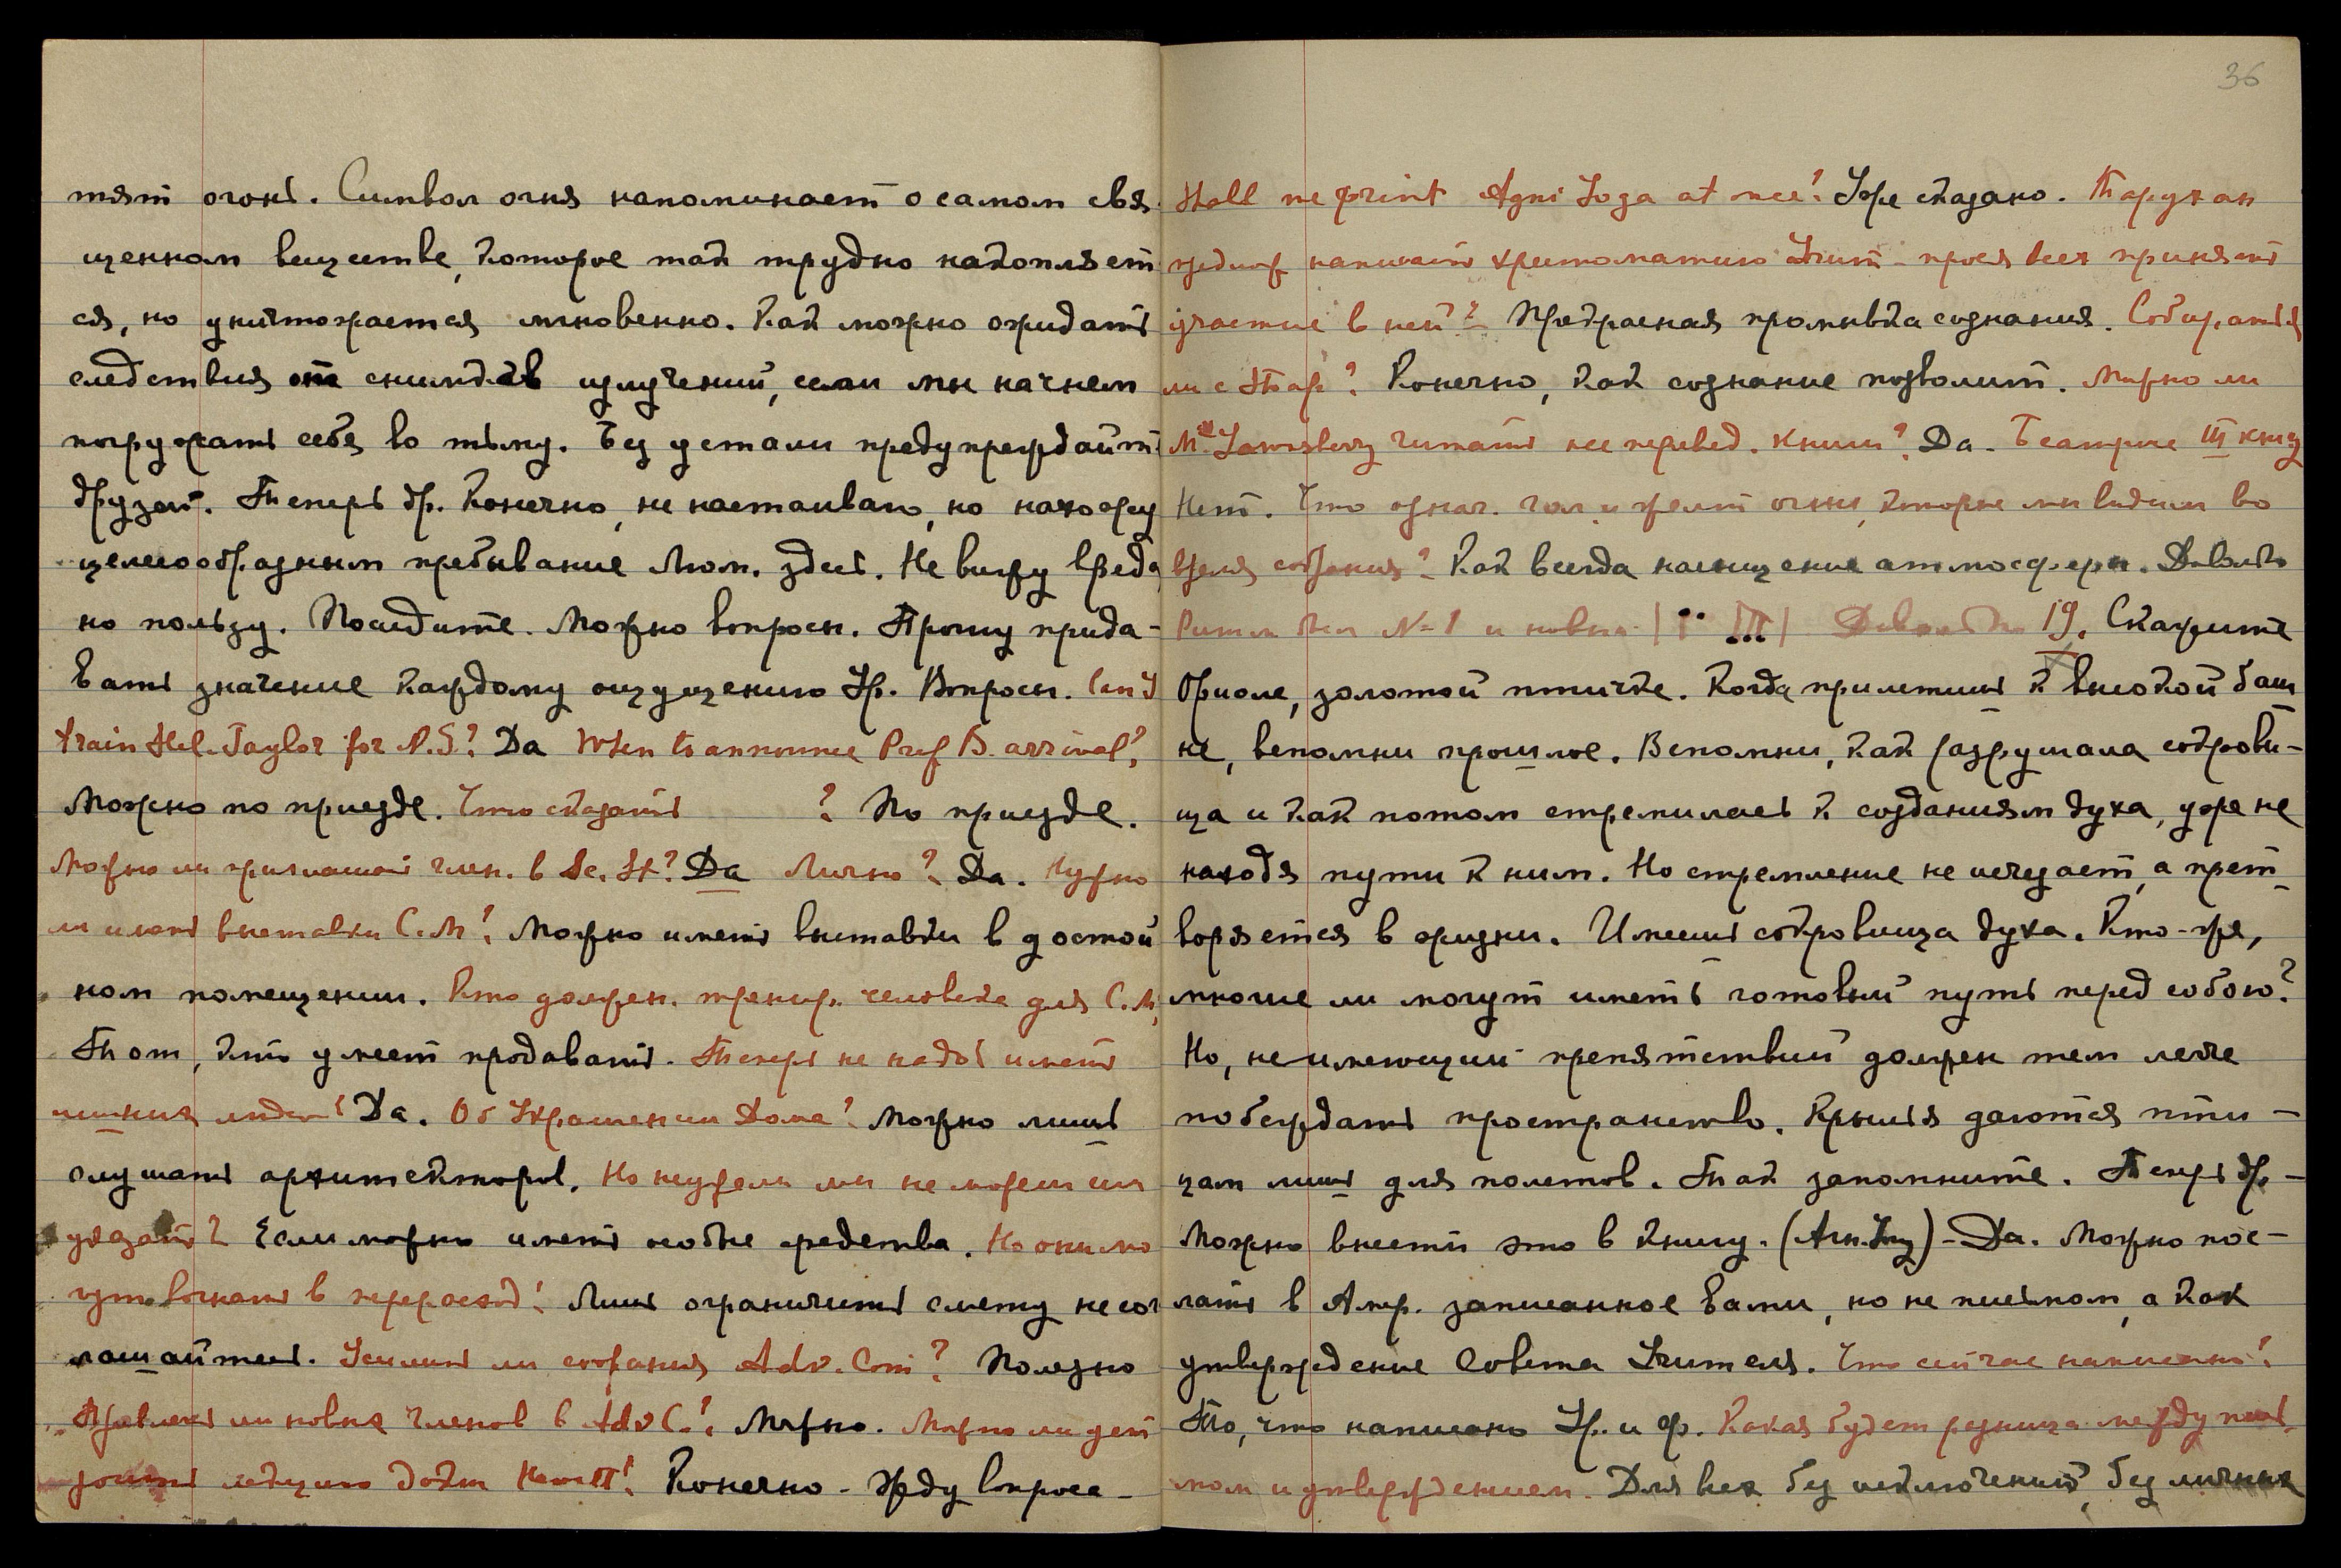 тят огонь. Символ огня напоминает о самом свя
щенном веществе, которое так трудно накопляет
ся, но уничтожается мгновенно. Как можно ожидать
следствия от снимков излучений, если мы начнем
погружать себя во тьму. Без устали предупреждайте
друзей. Теперь др. Конечно, не настаиваю, но нахожу
целесообразным пребывание Люм. здесь. Не вижу вреда
но пользу. Последите. Можно вопросы. Прошу прида-
вать значение каждому ощущению Ур. Вопросы. Can I
train Hel. Taylor for N.S? Да When to announce Prof B. arrival?
Можно по приезде. Что сказать ? По приезде.
Можно ли приглашать член. в Sc. St? Да Лично? Да. Нужно
ли иметь выставки С.М? Можно иметь выставки в достой
ном помещении. Кто должен. тренир. человека для С.М,
Тот, кто умеет продавать. Теперь не надо иметь
лишних людей? Да. Об Украшении Дома? Можно лишь
слушать архитекторов. Но неужели мы не можем им
указать? Если можно иметь особые средства. Но они мо
гут вогнать в перерасход? Лишь ограничить смету не сог
лашайтесь. Усилить ли собрания Adv. Com? Полезно
Привлечь ли новых членов в Adv C.? Можно. Можно ли
лекцию Докт Конечно - Жду вопроса -
36
Shall we print Agni Yoga at once? Уже сказано. Тарухан
предлож написать хритоматию Учит- прося всех принять
участие в ней? Прекрасная промывка сознания. Собираться
ли с Тар? Конечно, как сознание позволит. Можно ли
читать не перевед. книги? Да - Беатрисе III книгу
Нет. Что означ. гол и желт огни, которые мы видим во
время собрания? Как всегда насыщение атмосферы. Довольно
Ритм был N-1 и новый Довольно 19. Скажите
Ориоле, золотой птичке. Когда прилетишь к высокой баш
не, вспомни прошлое. Вспомни, как разрушала сокрови-
ща и как потом стремилась к созданиям духа, уже не
находя пути к ним. Но стремление не исчезает, а прет
воряется в жизни. Имеешь сокровища духа. Кто-же,
многие ли могут иметь готовый путь перед собою?
Но, не имеющий препятствий должен тем легче
побеждать пространство. Крылья даются пти-
цам лишь для полетов. Так запомните. Теперь др-
Можно внести это в книгу. (Агн. Йогу) - Да. Можно пос-
лать в Амер. записанное Вами, но не письмом, а как
утверждение Совета Учителя. Что сейчас написано?
То, что написано Ур. и Ф. Какая будет разница между пись
мом и утверждением. Для всех без исключений, без личных